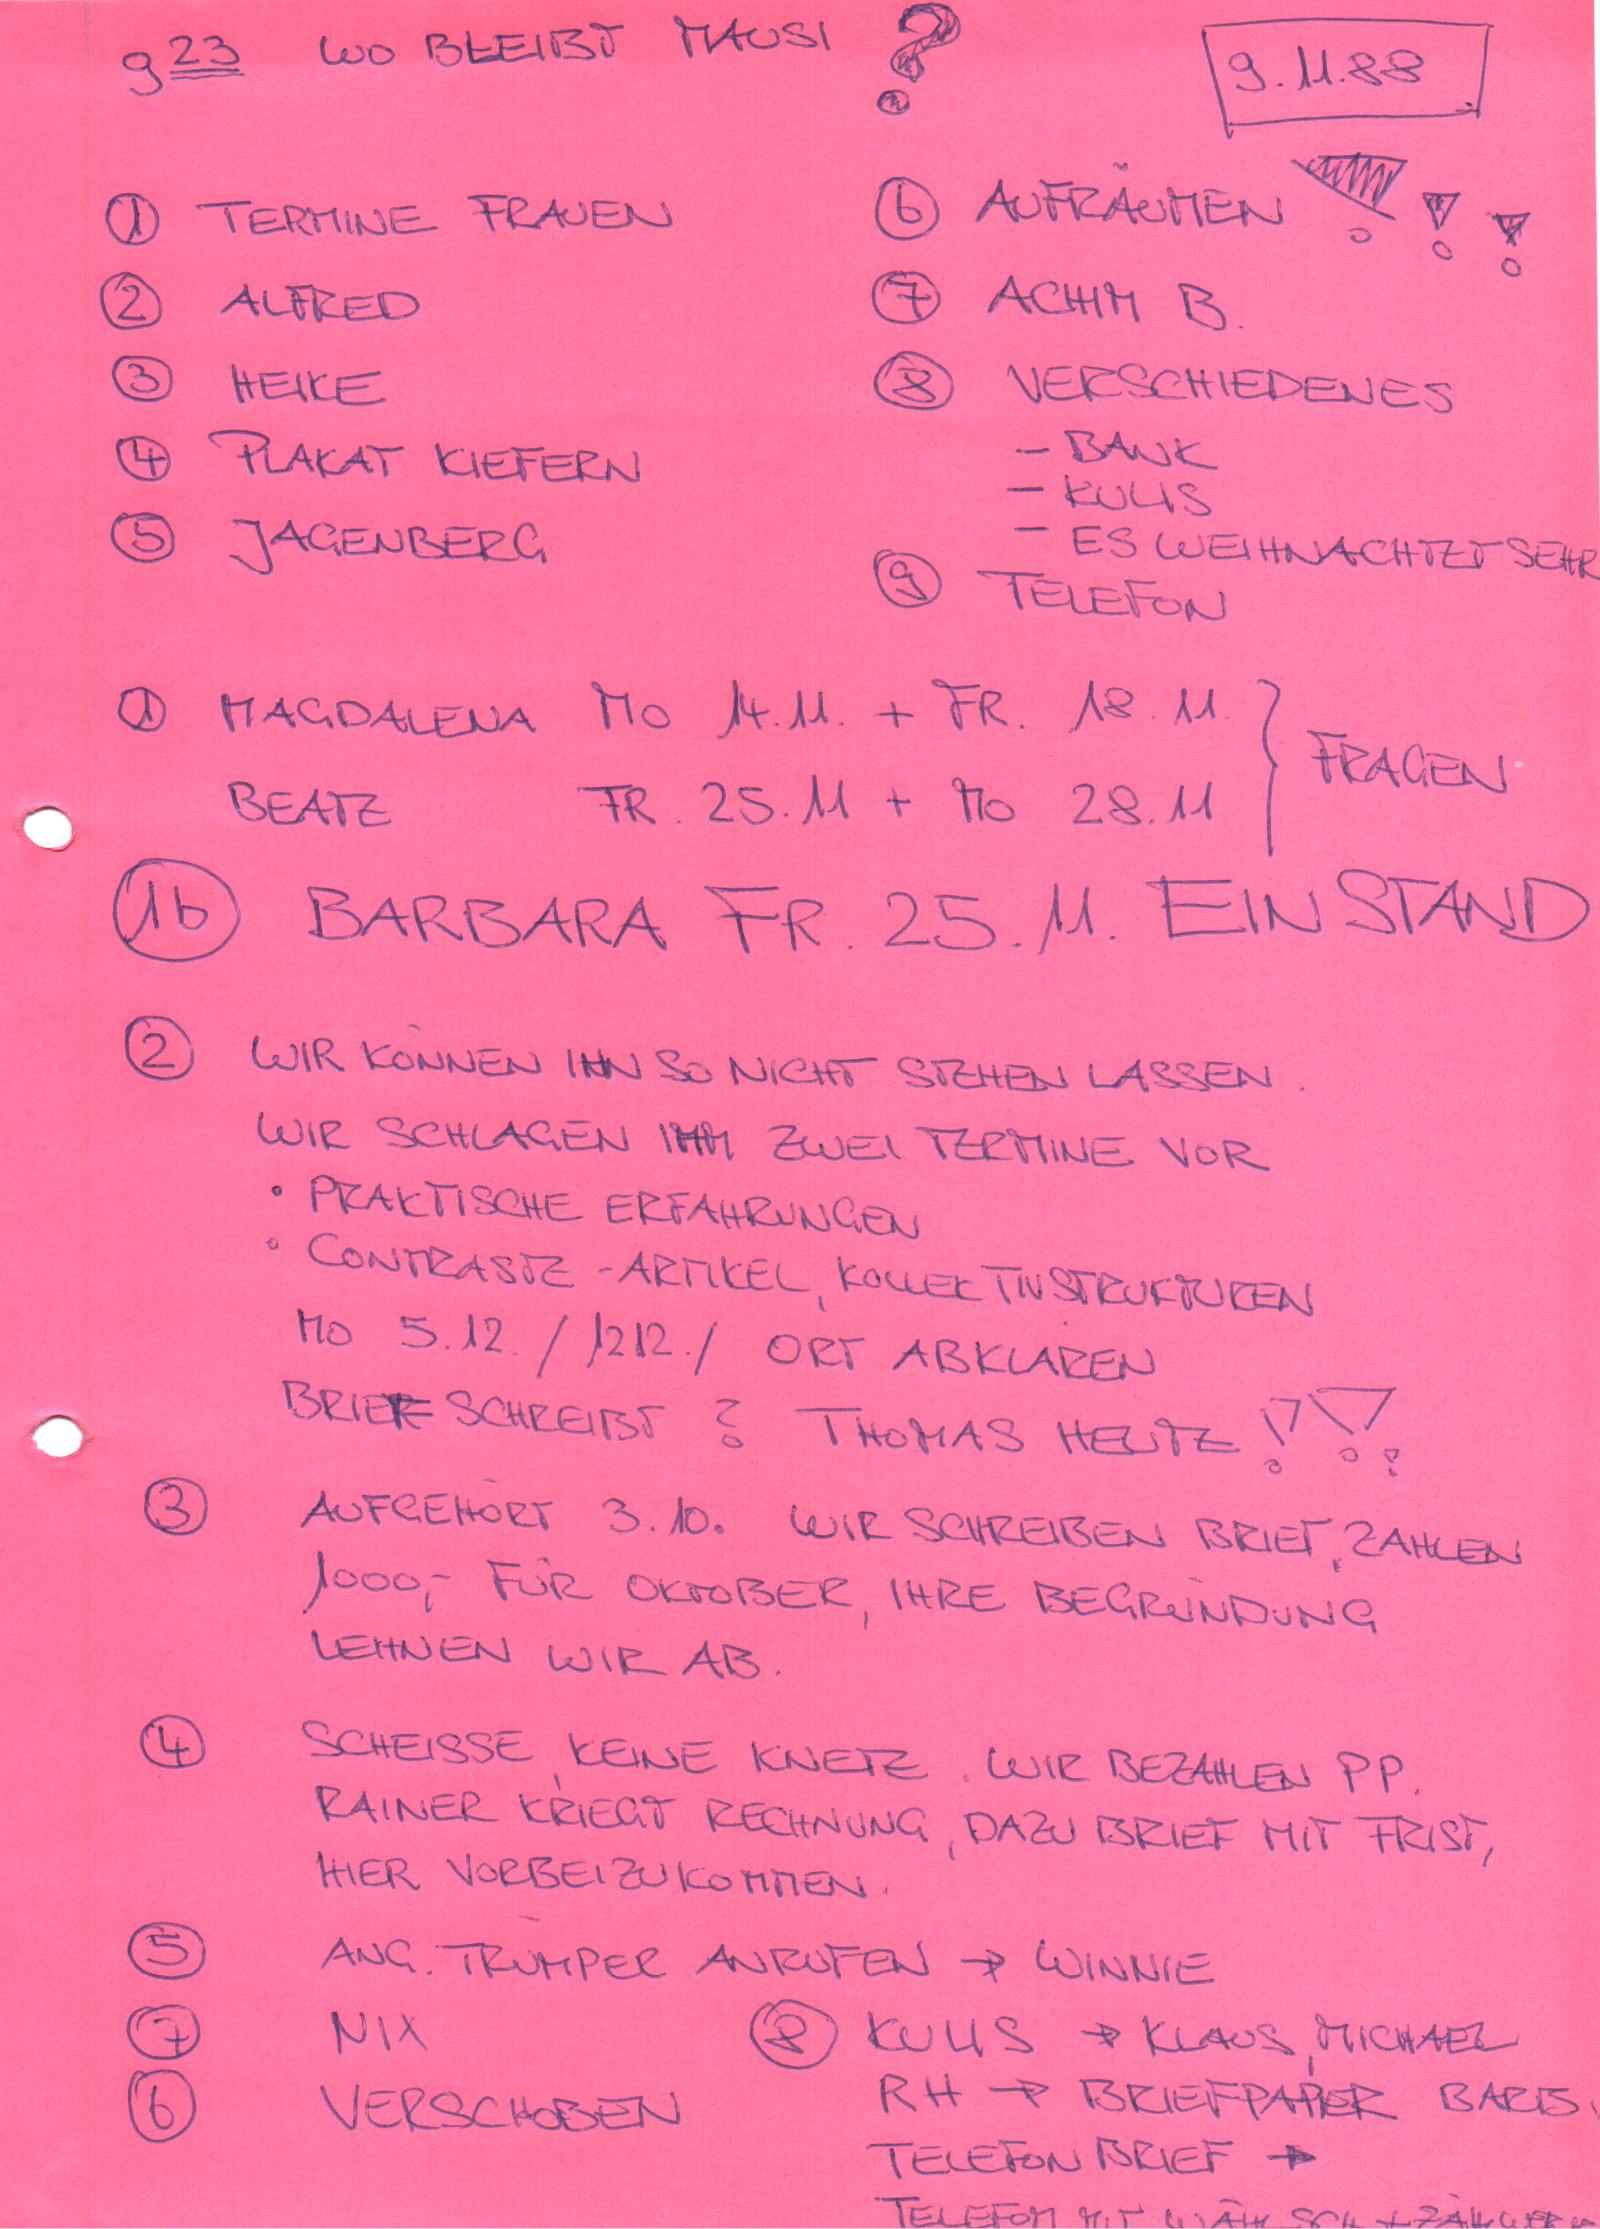 9 23 WO BLEIBT MAUSI ?
9.11.88
① TERMINE FRAUEN
② ALFRED
③ HEIKE
④ PLAKAT KIEFERN
⑤ JAGENBERG
⑥ AUFRÄUMEN !!!
⑦ ACHIM B.
⑧ VERSCHIEDENES
– BANK
– KULIS
– ES WEIHNACHTET SEHR
⑨ TELEFON
① MAGDALENA MO 14.11. + FR. 18.11
BEATE FR. 25.11 + MO 28.11 } FRAGEN
1b BARBARA FR. 25.11. EINSTAND
② WIR KÖNNEN IHN SO NICHT STEHEN LASSEN.
WIR SCHLAGEN IHM ZWEI TERMINE VOR
• PRAKTISCHE ERFAHRUNGEN
• CONTRASTE-ARTIKEL, KOLLEKTIVSTRUKTUREN
MO 5.12. / 1212. / ORT ABKLÄREN
BRIEF SCHREIBT ? THOMAS HEUTE !!!
③ AUFGEHÖRT 3.10. WIR SCHREIBEN BRIEF, ZAHLEN
1000,- FÜR OKTOBER, IHRE BEGRÜNDUNG
LEHNEN WIR AB.
④ SCHEISSE, KEINE KNETE. WIR BEZAHLEN PP.
RAINER KRIEGT RECHNUNG, DAZU BRIEF MIT FRIST,
HIER VORBEIZUKOMMEN.
⑤ ANG. TRÜMPER ANRUFEN → WINNIE
⑦ NIX
⑥ VERSCHOBEN
⑧ KULIS → KLAUS, MICHAEL
RH → BRIEFPAPIER BARB.
TELEFON BRIEF →
TELEFON MIT